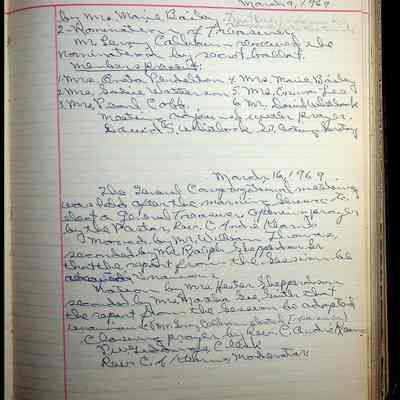 March 9, 1969
by Mrs. Marie Bailey
2 - Nomination of Treasurer
Mr. Calhoun received the
nomination by secret ballot.
members present:
1. Mrs. Pendelton 4. Mrs. Marie Bailey
2. Mrs. Sadie Watterson 5. Mrs. Emma Lee
3. Mrs. Pearl Cobb 6. Mr. David Whitlock
Meeting adjourned with prayer.
David S. Whitlock Sr. Acting Secretary
March 16, 1969
The General Congregational meeting
was held after the morning service to
elect a General Treasurer opening prayer
by the Pastor, Rev. C. André Kearns
Moved by Mr. William Thomas,
seconded by Mr. Ralph Shepperson Sr
that the report from the session be
unanimous
Motion by Mrs. Hester Shepperson
seconded by Mrs. Lee Smith that
the report from the session be adopted
unanimous Mr. Calhoun elected Treasurer
Closing prayer by Rev. C. André Kearns
Clerk
Rev. C. A. Kearns, Moderator